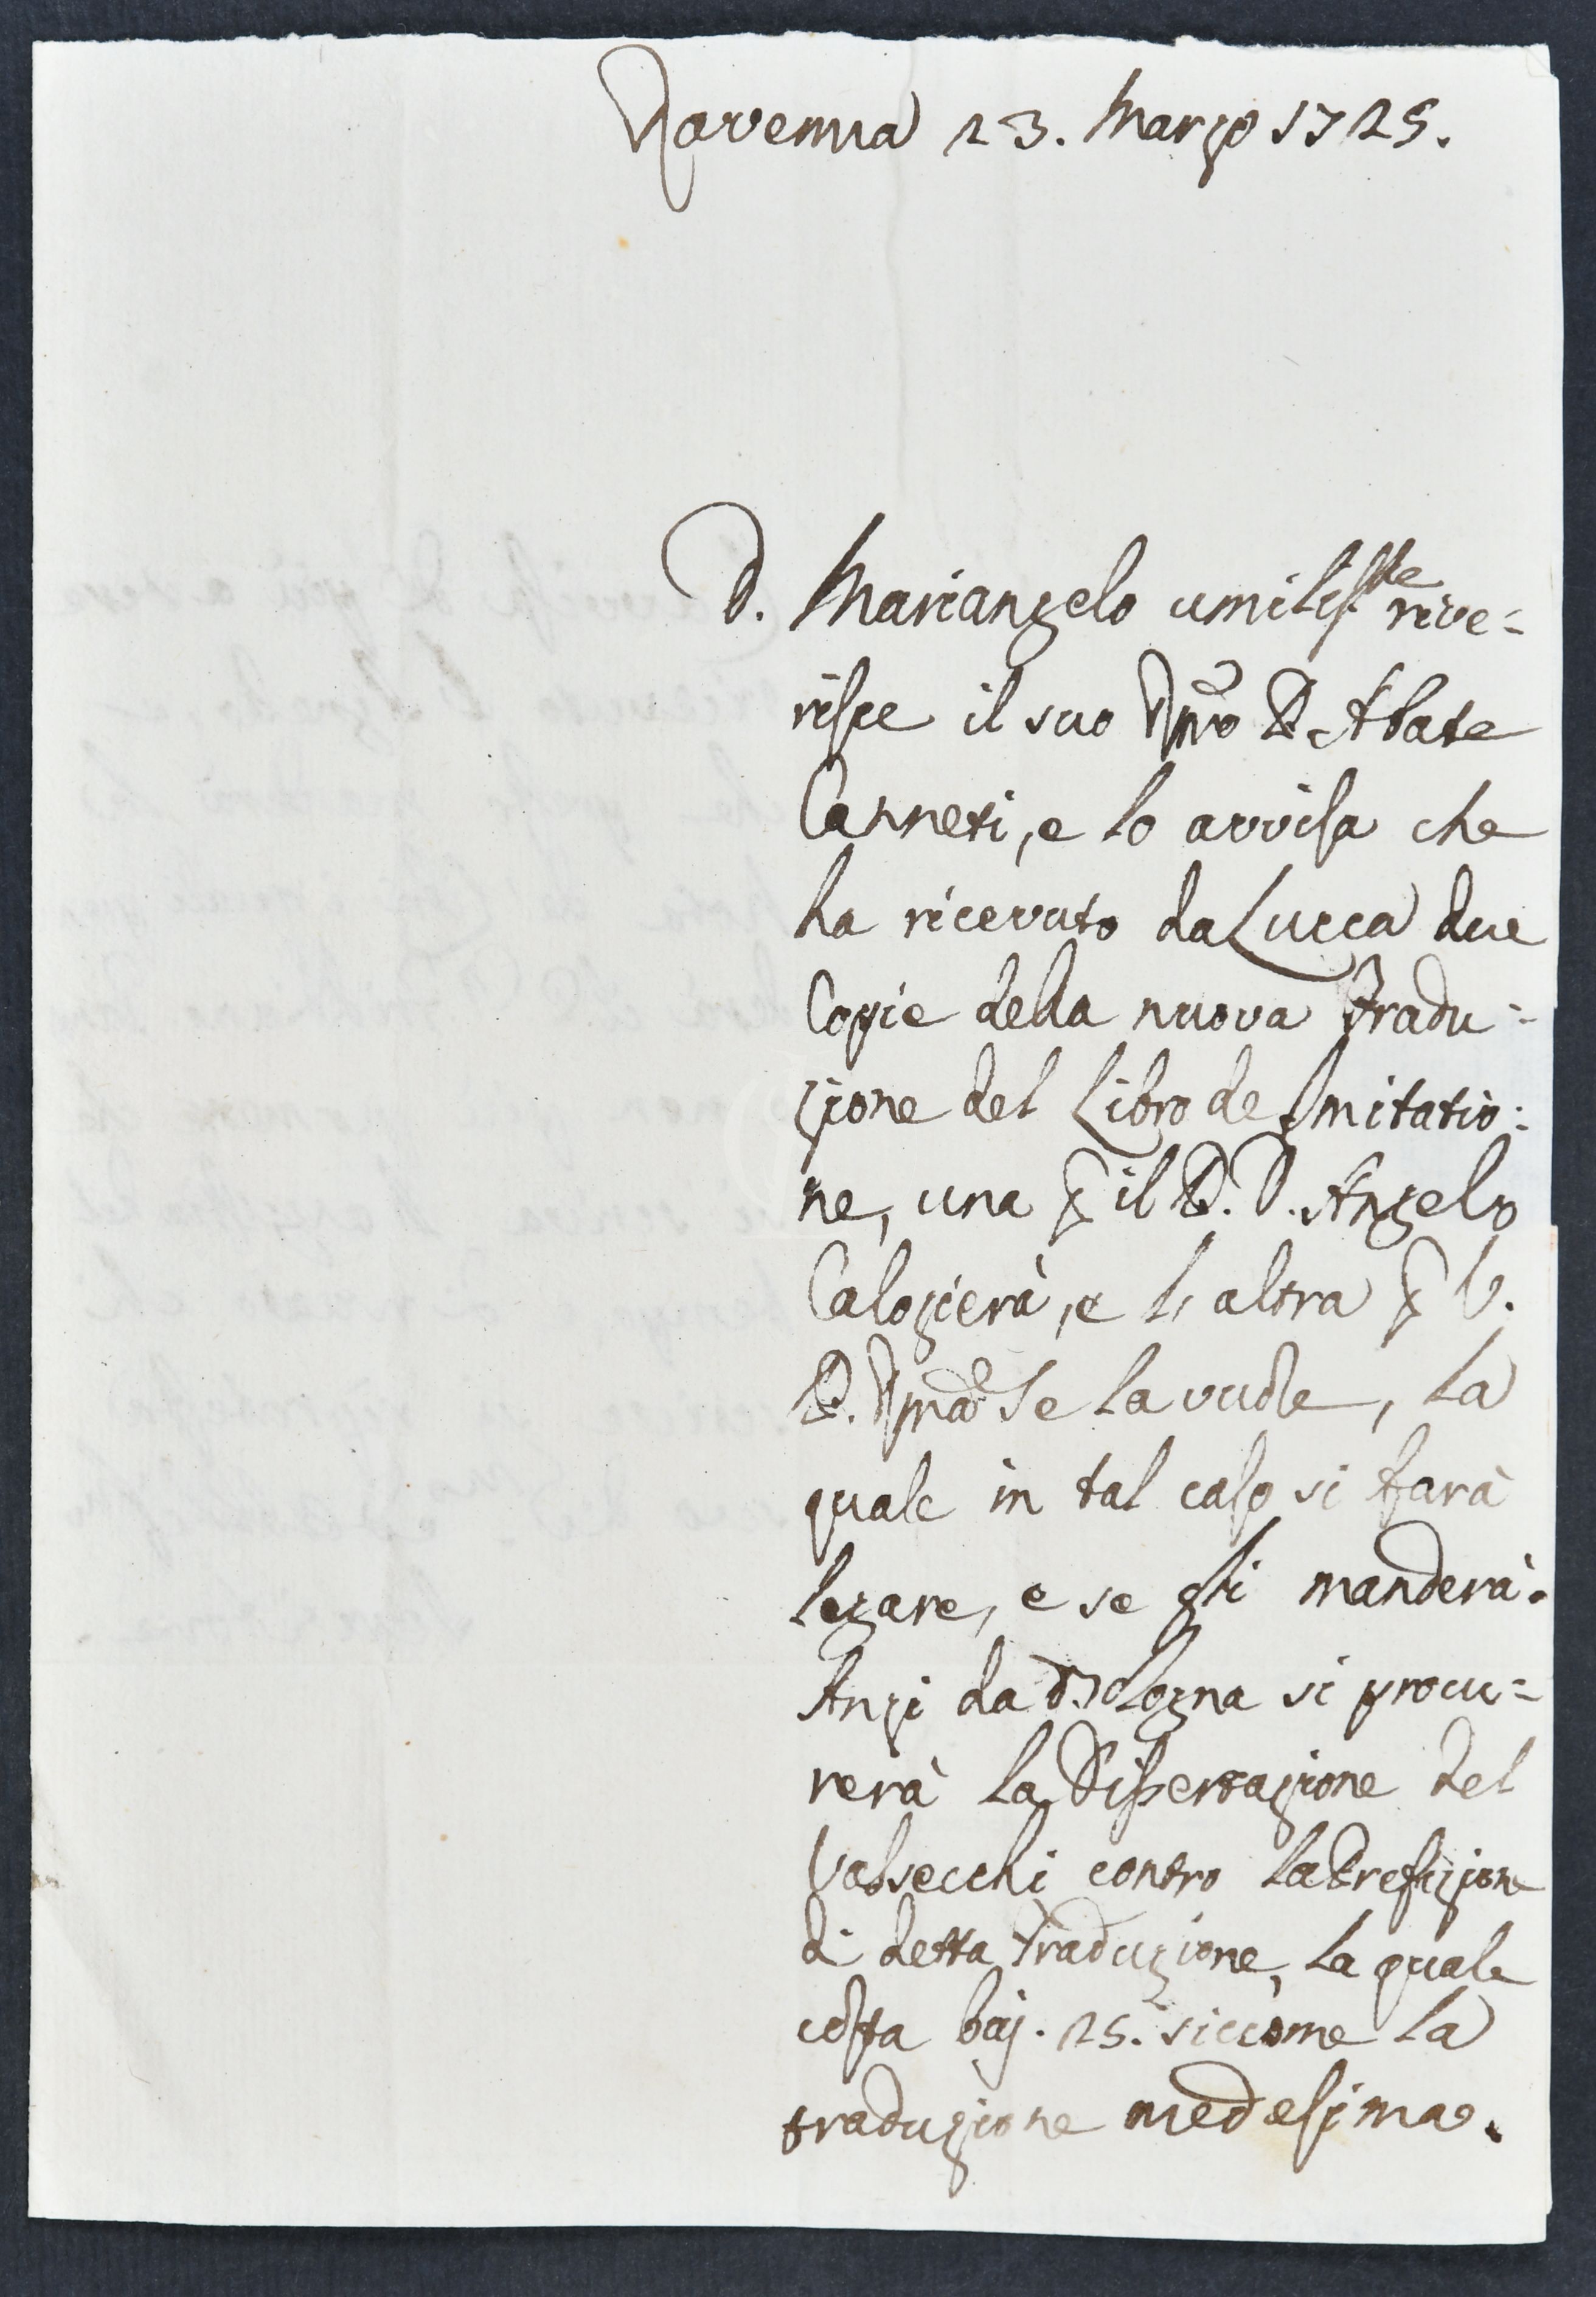 Ravenna 23. Marzo 1725.
D. Mariangelo umiliss.te rive=
risce il suo Rmo P. Abate
Canneti, e lo avvisa che
ha ricevuto da Lucca due
Copie della nuova Tradu=
zione del Libro de Imitatio=
ne, una p il P. D. Angelo
Calogierà, e l'altra p V.
P. Rma se la vuole, la
quale in tal caso si farà
legare, e se gli manderà.
Anzi da Bologna si procu=
rerà la Dissertazione del
Valsecchi contro la Prefazione
di detta Traduzione, la quale
costa baj. 25. siccome la
traduzione medesima.